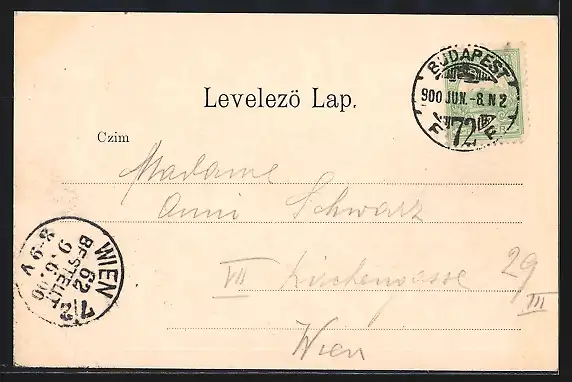 Levelező Lap.
Czim
Madame
Anni Schwarz
VII Kirchengasse 29
III
Wien
BUDAPEST
900 JUN.-8. N 2
F 72 F
WIEN
7/2
62
BESTELLT
9. 6. 00
8-9 V